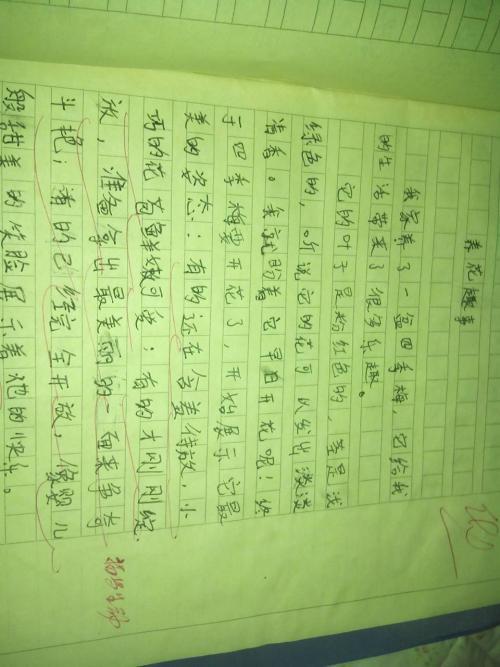 养花趣事
我家养了一盆四季梅，它给我
的生活带来了很多乐趣。
它的叶子是粉红色的，茎是浅
绿色的，听说它的花可以发出淡淡
清香。我就盼着它早日开花呢！终
于四季梅要开花了，开始展示它最
美的姿态：有的还在含羞待放，小
巧的花苞美可爱；有的才刚刚绽
放，准备拿出最美丽的一面来争奇
斗艳；有的已经完全开放，像婴儿
般甜美的笑脸展示着她的快乐。
描写生动